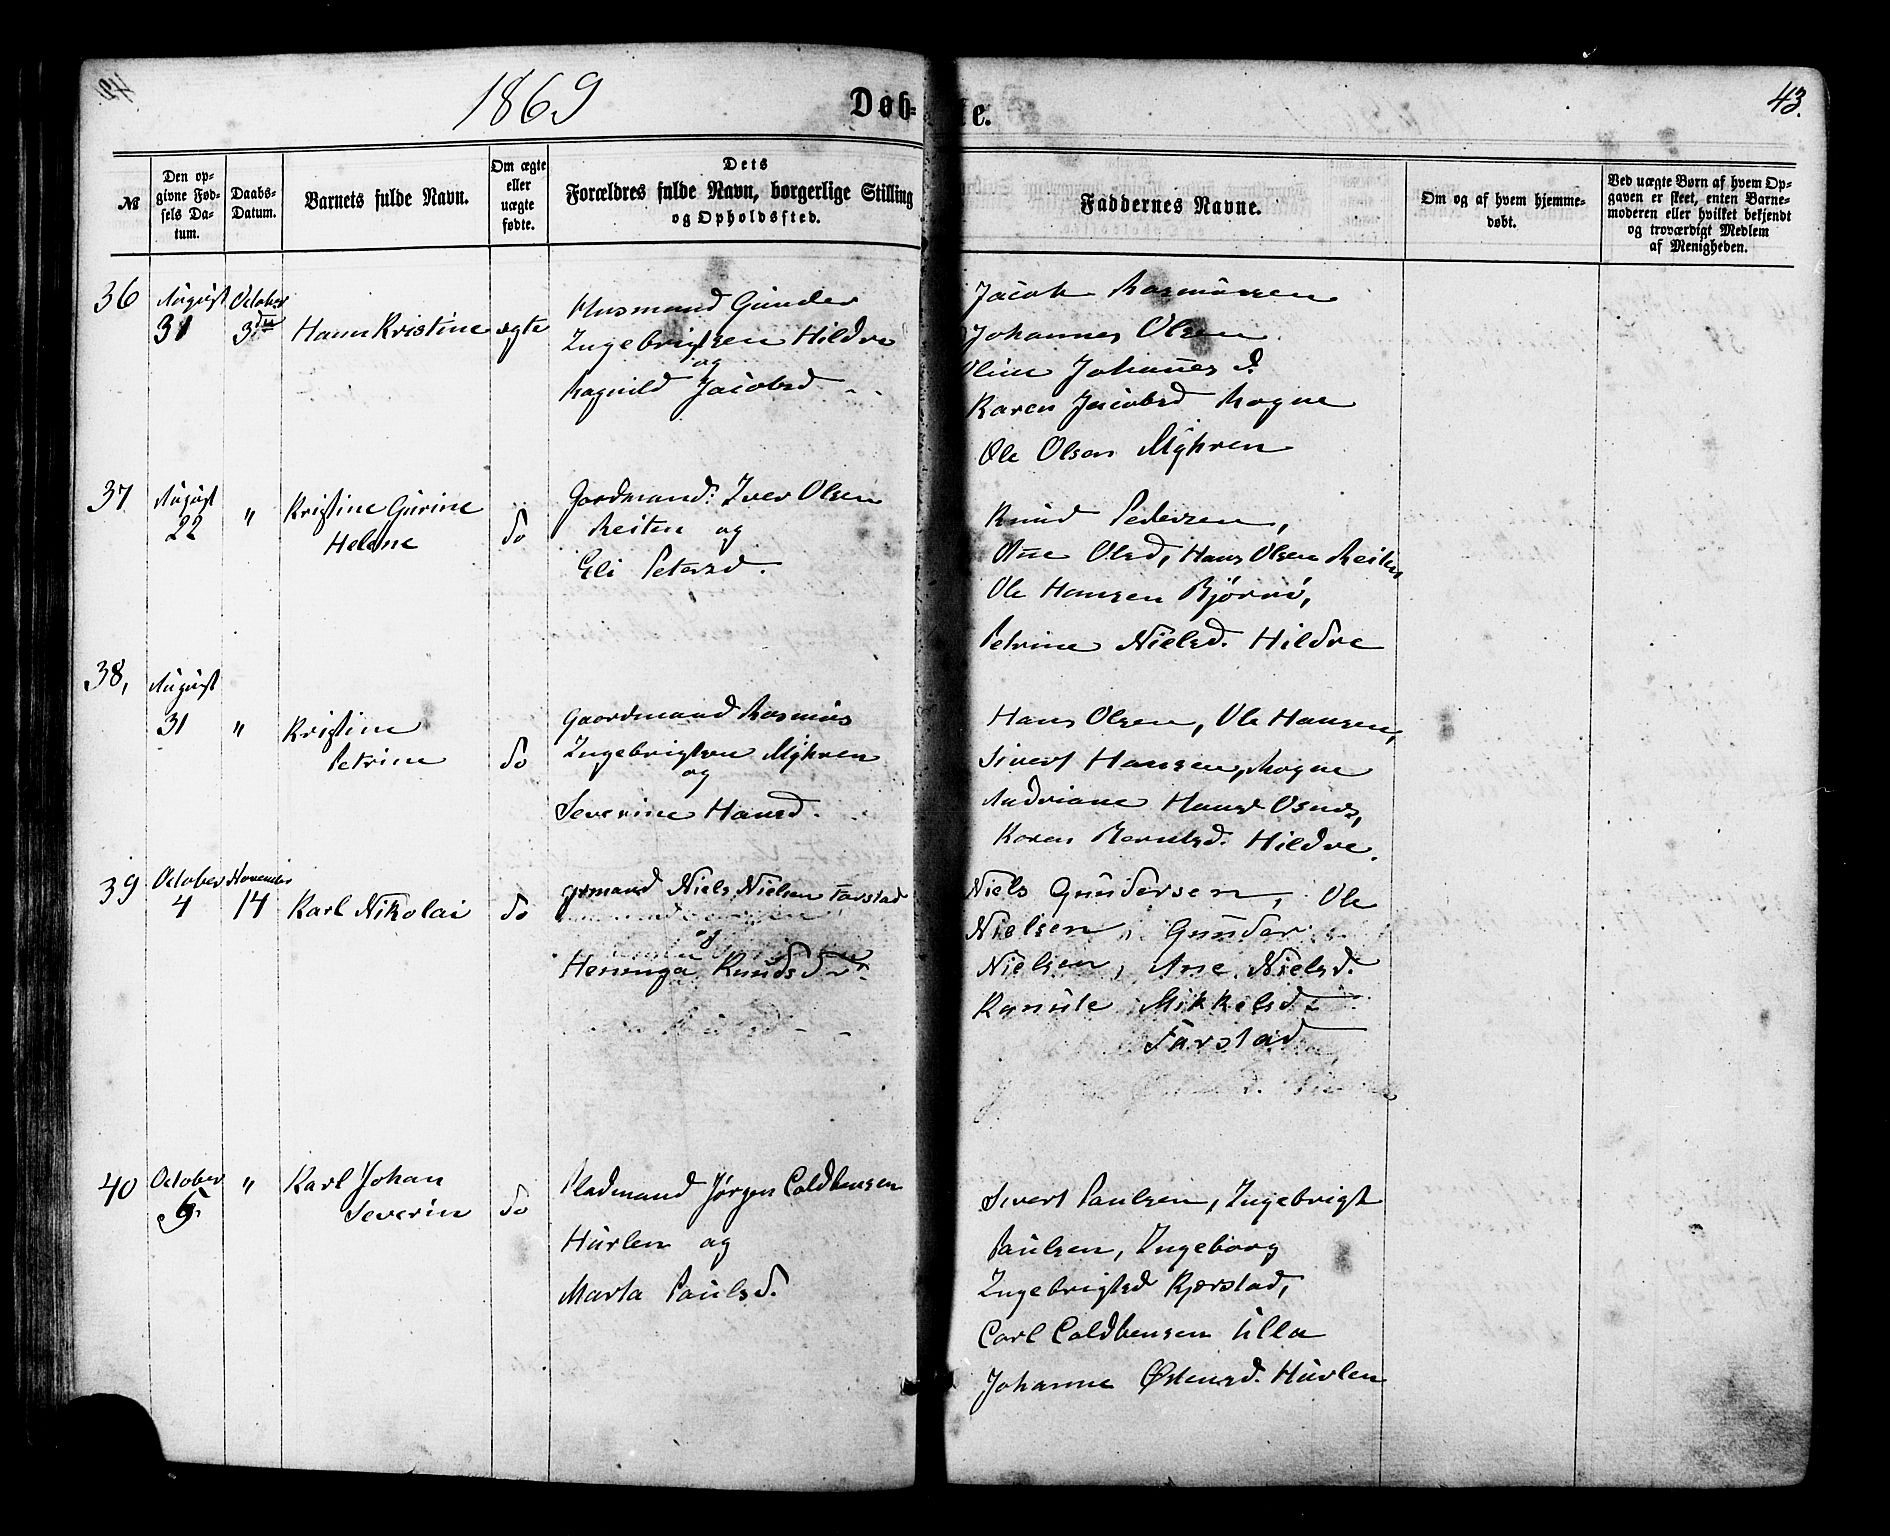 1869
Døb-
te.
43.
№
Den op-
givne Fød-
sels Da-
tum.
Daabs-
Datum.
Barnets fulde Navn.
Om ægte
eller
uægte
fødte.
Dets
Forældres fulde Navn, borgerlige Stilling
og Opholdssted.
Faddernes Navne.
Om og af hvem hjemme-
døbt.
Ved uægte Børn af hvem Op-
gaven er skeet, enten Barne-
moderen eller hvilket bekjendt
og troværdigt Medlem
af Menigheden.
36
August
31
October
3die
Hann Kristine
ægte
Husmand Gunder
Ingebrigtsen Hildre
og
Ragnild Jacobsd
Jacob Rasmussen
Johannes Olsen
Oline Johannes d.
Karen Jacobsd Rogne
Ole Olsen Myhren
37
August
22
"
Kristine Gurine
Helene
do
Gaardmand: Iver Olsen
Reiten og
Eli Petersd.
Knud Pedersen,
Ane Olsd, Hans Olsen Reiten
Ole Hansen Bjørnø,
Petrine Nielsd. Hildre
38,
August
31
"
Kristine
Petrine
do
Gaardmand Rasmus
Ingebrigtsen Myhren
og
Severine Hansd.
Hans Olsen, Ole Hansen,
Sivert Hansen, Rogne
Andriane Hansd Osnes,
Karen Berntsd. Hildre.
39
October
4
November
14
Karl Nikolai
do
grmand Niels Nielsen Farstad
og
Heninga Knudsdtr
Niels Gundersen, Ole
Nielsen, Gunder
Nielsen, Ane Nielsd.
Mikkelsd
Farstad
40
October
5
"
Karl Johan
Severin
do
Pladsmand Jørgen Coldbensen
Hurlen og
Marta Paulsd.
Sivert Paulsen, Ingebrigt
Paulsen, Ingeborg
Ingebrigtsd Kjærstad,
Carl Coldbensen Ulla
Johanne Østensd. Hurlen